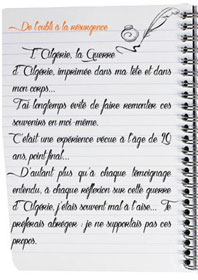 De l'oubli à la résurgence
L'Algérie, la Guerre
d'Algérie, imprimée dans ma tête et dans
mon corps...
J'ai longtemps évité de faire remonter ces
souvenirs en moi-même.
C'était une expérience vécue à l'âge de 20
ans, point final...
D'autant plus qu'à chaque témoignage
entendu, à chaque réflexion sur cette guerre
d'Algérie, j'étais souvent mal à l'aise... Je
préférais abréger : je ne supportais pas ces
propos.